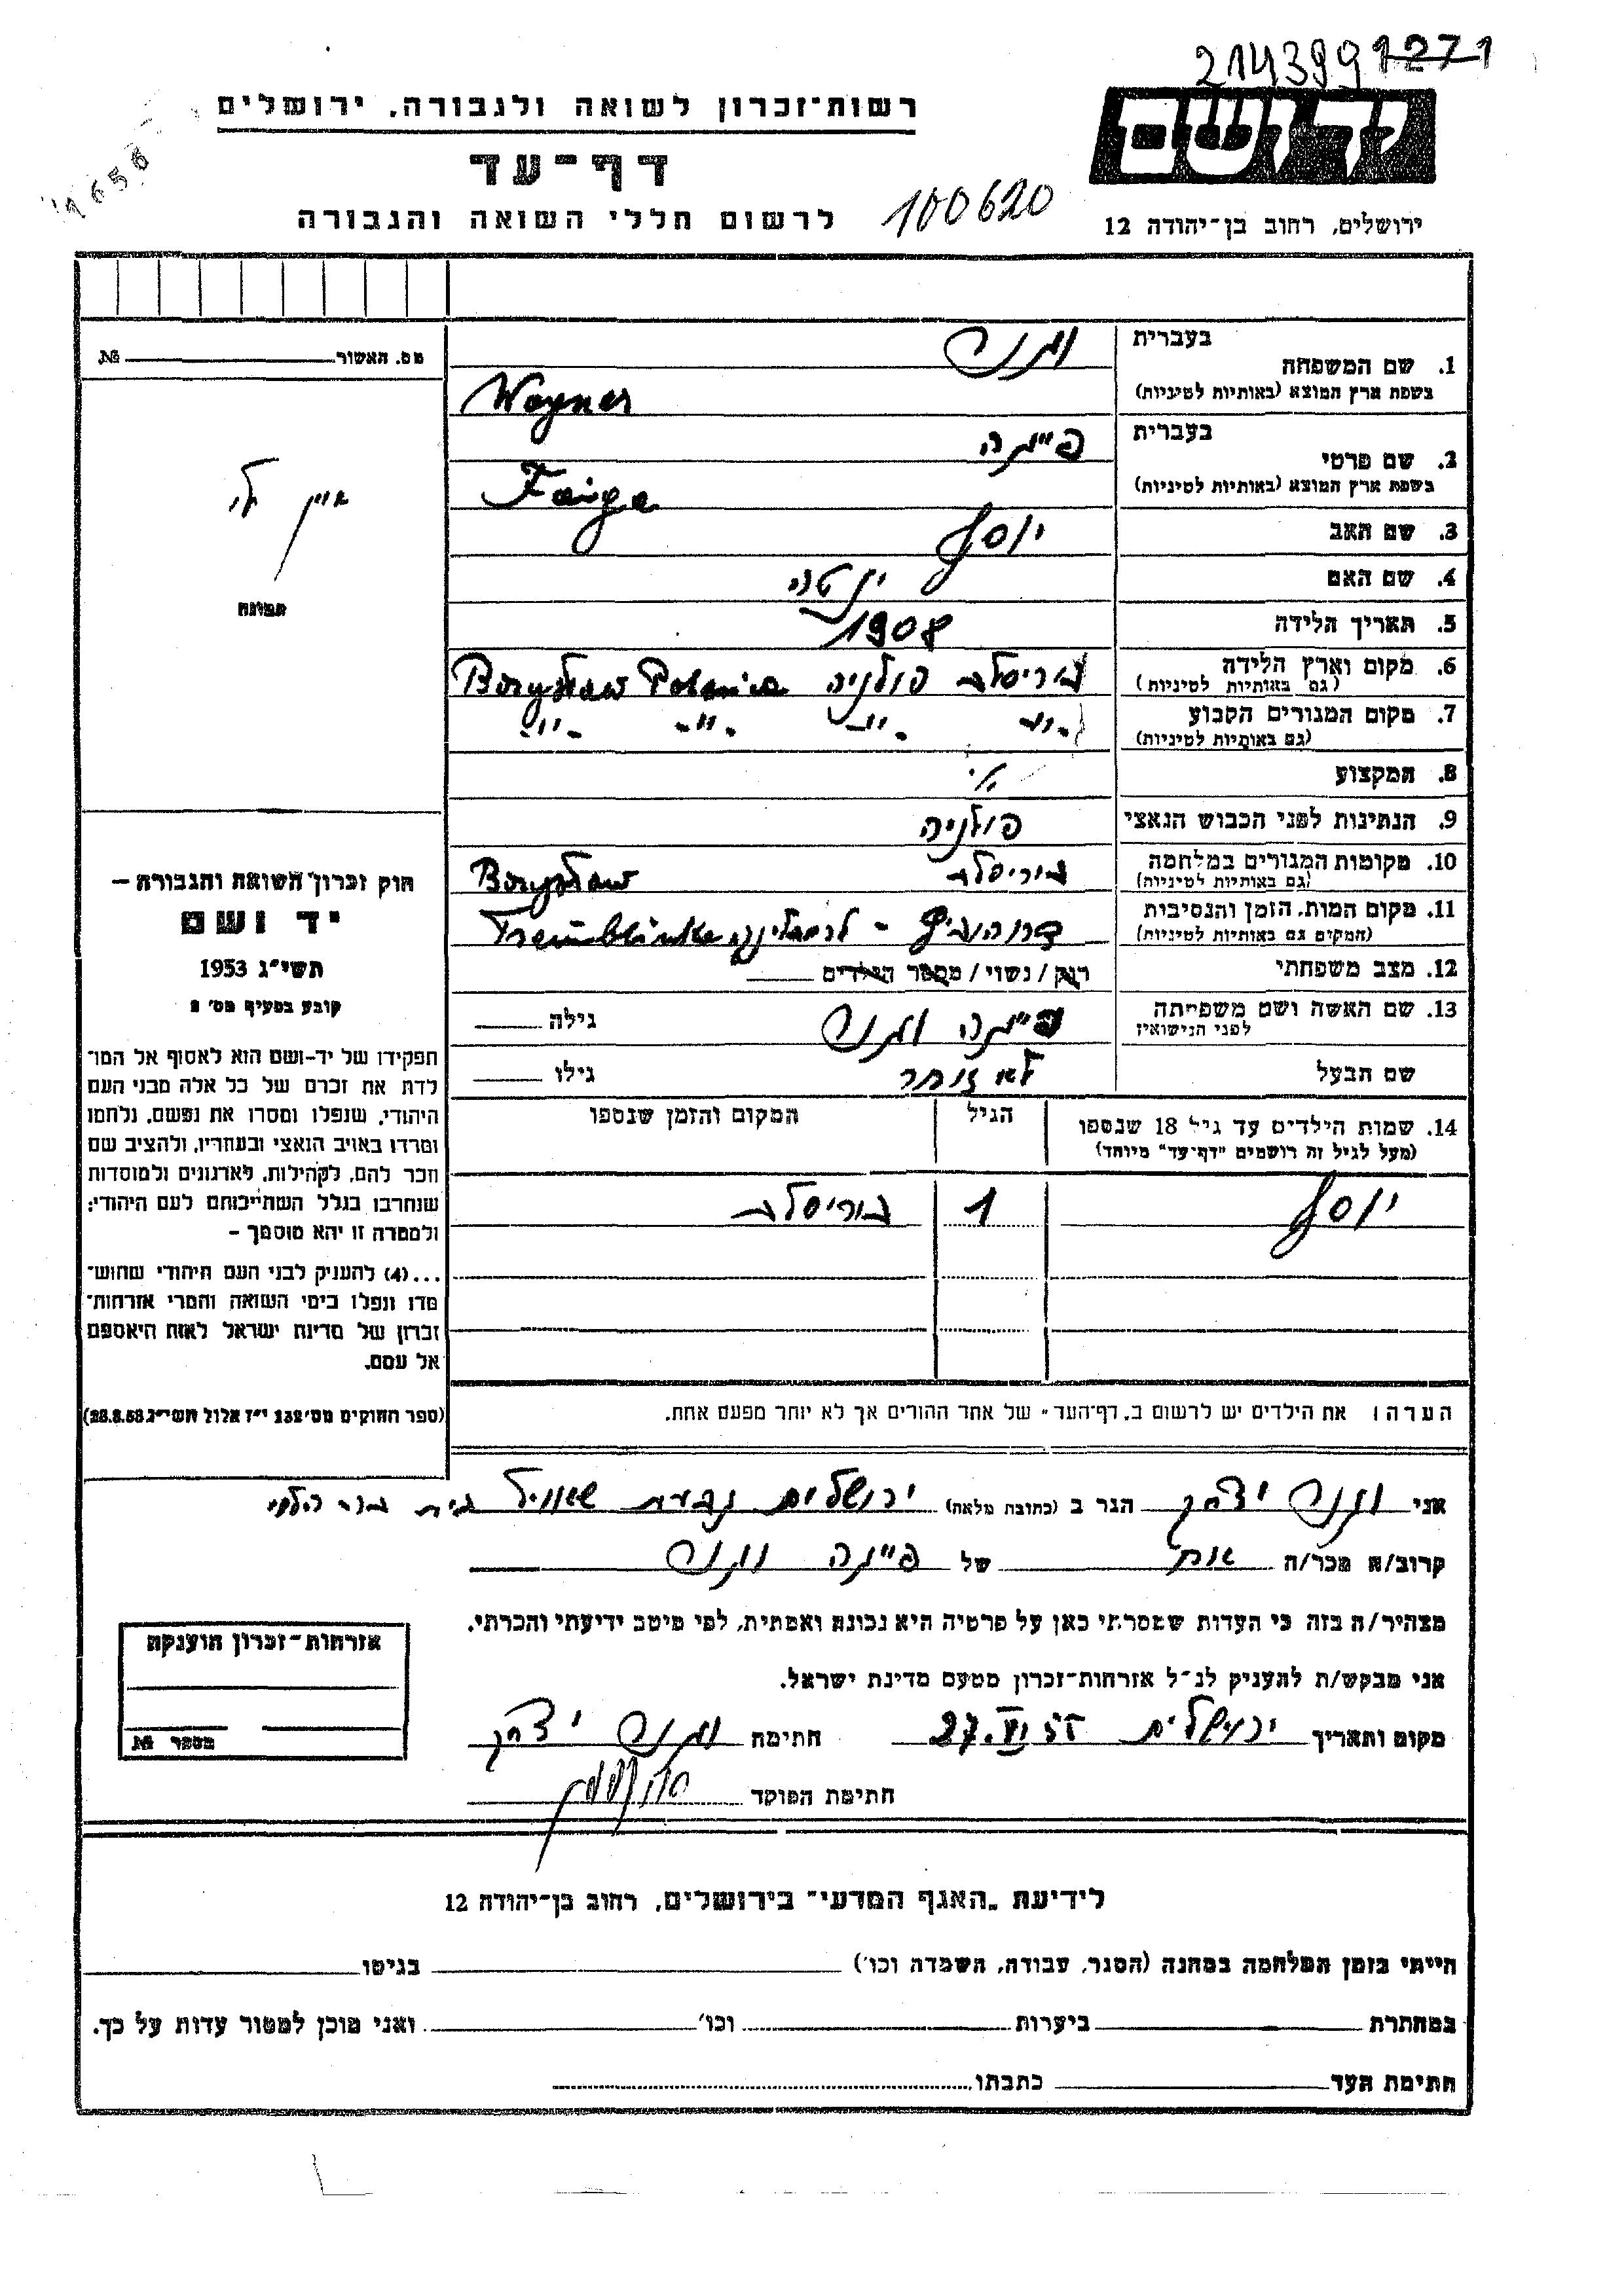 214399 1271
יד ושם
רשות־זכרון לשואה ולגבורה, ירושלים
1656
דף־עד
לרשום חללי השואה והגבורה
100620
ירושלים, רחוב בן־יהודה 12
בעברית
1. שם המשפחה וגנר
בשפת ארץ המוצא (באותיות לטיניות) Wagner
בעברית
2. שם פרטי פייגה
בשפת ארץ המוצא (באותיות לטיניות) Faiga
3. שם האב יוסף
4. שם האם
5. תאריך הלידה 1908
6. מקום וארץ הלידה בוריסלב פולניה Boryslaw Polania
(גם באותיות לטיניות)
7. מקום המגורים הקבוע -"- -"- -"- -"-
(גם באותיות לטיניות)
8. המקצוע
9. הנתינות לפני הכבוש הנאצי פולניה
10. מקומות המגורים במלחמה בוריסלב Boryslaw
(גם באותיות לטיניות)
11. מקום המות, הזמן והנסיבות דרוהוביץ -
(המקום גם באותיות לטיניות)
12. מצב משפחתי רווק / נשוי / מספר הילדים
13. שם האשה ושם משפחתה פייגה וגנר גילה
לפני הנישואין
שם הבעל לא זוכר גילו
14. שמות הילדים עד גיל 18 שנספו הגיל המקום והזמן שנספו
(מעל לגיל זה רושמים "דף־עד" מיוחד)
יוסף 1 בוריסלב
הערה: את הילדים יש לרשום ב„דף־העד" של אחד ההורים אך לא יותר מפעם אחת.
מס. האשור №
אין לי
תמונה
חוק זכרון השואה והגבורה –
יד ושם
תשי"ג 1953
קובע בסעיף מס' 2
תפקידו של יד־ושם הוא לאסוף אל המו־
לדת את זכרם של כל אלה מבני העם
היהודי, שנפלו ומסרו את נפשם, נלחמו
ומרדו באויב הנאצי ובעוזריו, ולהציב שם
וזכר להם, לקהילות, לארגונים ולמוסדות
שנחרבו בגלל השתייכותם לעם היהודי;
ולמטרה זו יהא מוסמך –
...(4) להעניק לבני העם היהודי שהוש־
מדו ונפלו בימי השואה והמרי אזרחות־
זכרון של מדינת ישראל לאות היאספם
אל עמם.
(ספר החוקים מס' 132 י"ז אלול תשי"ג 28.8.53)
אני וגנר יצחק הגר ב (כתובת מלאה) ירושלים גבעת שאול בית
קרוב/ה מכר/ה אח של פייגה וגנר
מצהיר/ה בזה כי העדות שמסרתי כאן על פרטיה היא נכונה ואמתית, לפי מיטב ידיעתי והכרתי.
אני מבקש/ת להעניק לנ"ל אזרחות־זכרון מטעם מדינת ישראל.
מקום ותאריך ירושלים 27.VI.55 חתימה וגנר יצחק
חתימת הפוקד
אזרחות־זכרון הוענקה
מספר №
לידיעת „האגף המדעי" בירושלים, רחוב בן־יהודה 12
הייתי בזמן המלחמה במחנה (הסגר, עבודה, השמדה וכו') בגיטו
במחתרת ביערות וכו' ואני מוכן למסור עדות על כך.
חתימת העד כתבתו